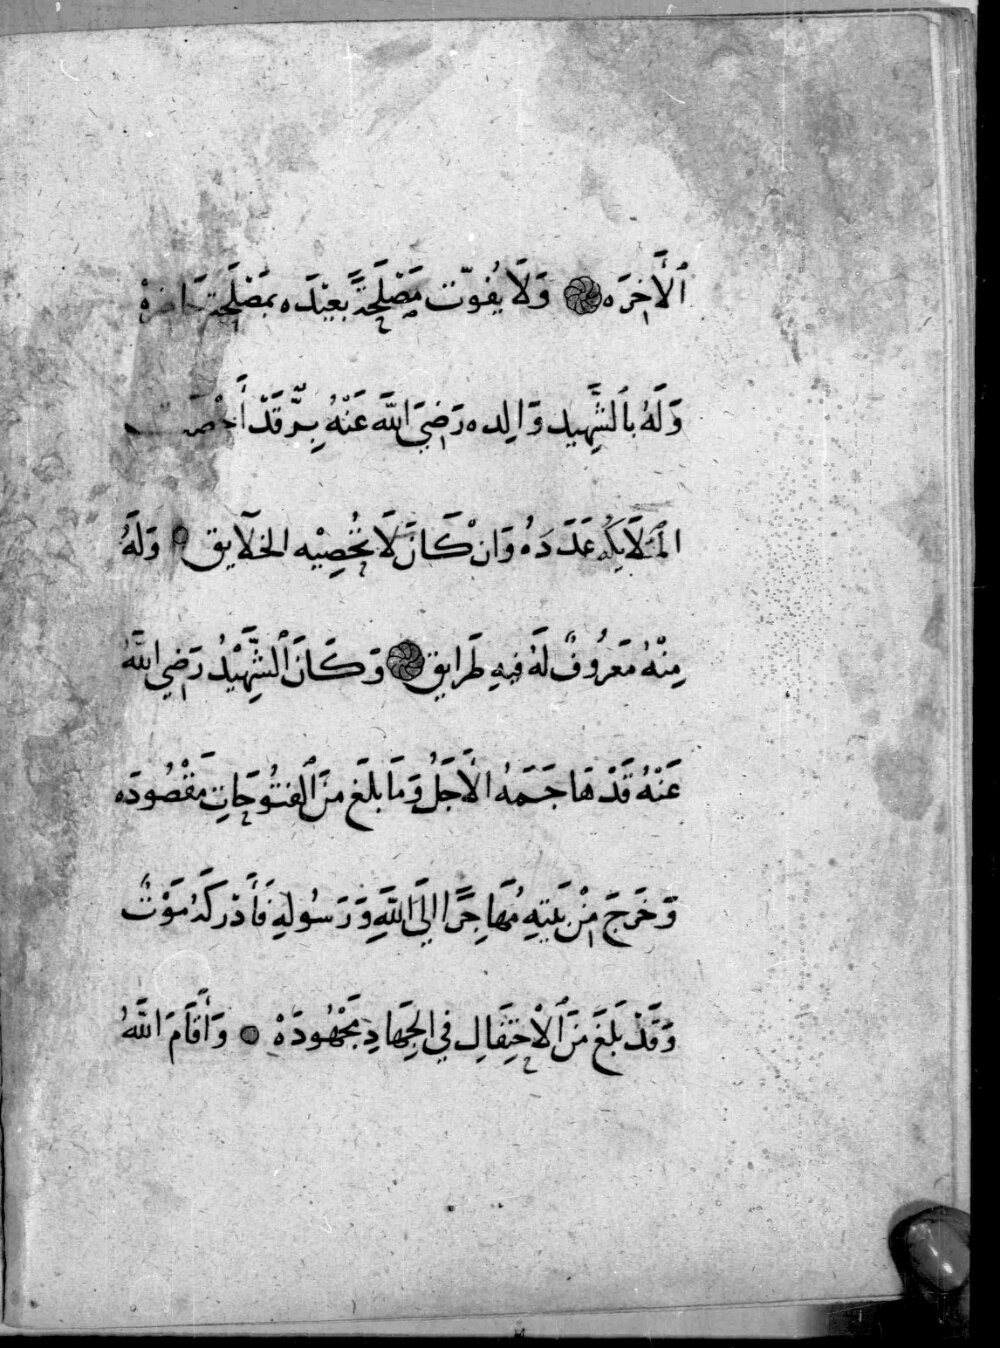 ٱلْأَخِرَه ۞ وَلَا يُفوّت مَصْلَحَةً بَعِيْدَه بمَصْلَحَة
وَلَهُ بالشَّهِيد وَالِده رَضِيَ اللَّه عَنْهُ بِرّ قَدْ أَحْصَت
المَلَايِكَه عَدَدَهُ وَانْ كَانَ لَا تُحْصِيْه الخلَايق ۞ وَلَهُ
مِنْهُ مَعرُوفٌ لَهُ فِيهِ طَرَايق ۞ وَكَانَ ٱلشَّهِيْدُ رَضِي اللَّهُ
عَنْهُ قَدْ هَاجَمَهُ الأَجَلُ وَمَا بلَغَ مِنَ ٱلفتُوحَاتِ مَقْصُودَه
وَخَرَجَ مِنْ بَيْتِهِ مُهَاجِرًا الَى اللَّهِ وَرَسُولهِ فَأَدْركَهُ مَوْتٌ
وَقَدْ بَلَغَ مِنَ ٱلْاحْتِفَالِ فِي الجِهَادِ مَجْهُودَهْ ۞ وَأَقَامَ اللَّهُ